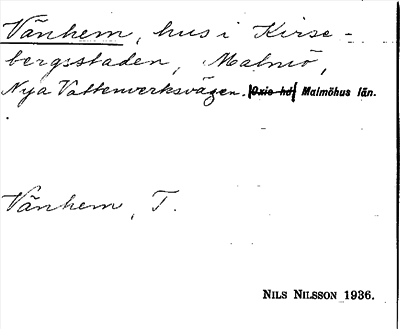 Vänhem, hus i Kirse-
bergsstaden, Malmö,
Nya Vattenverksvägen. [Oxie hd] Malmöhus län.
Vänhem, T.
NILS NILSSON 1936.